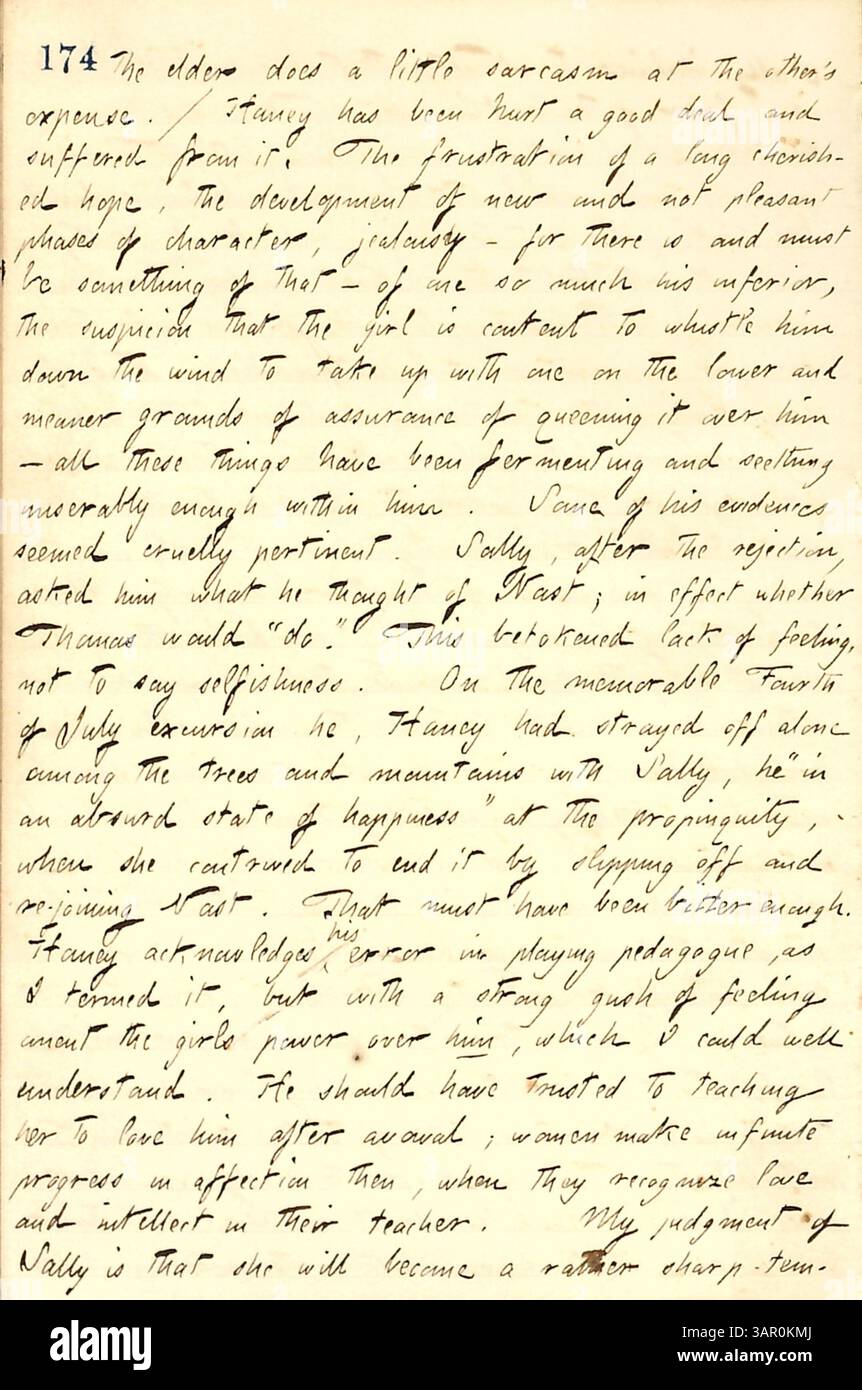 174 The elder does a little sarcasm at the other's
expense. / Haney has been hurt a good deal and
suffered from it. The frustration of a long cherish-
ed hope, the development of new and not pleasant
phases of character, jealousy - for there is and must
be something of that - of one so much his inferior,
the suspicion that the girl is content to whistle him
down the wind to take up with one on the lower and
meaner grounds of assurance of queening it over him
- all these things have been fermenting and seething
miserably enough within him. Some of his evidences
seemed cruelly pertinent. Sally, after the rejection,
asked him what he thought of Nast; in effect whether
Thomas would "do." This betokened lack of feeling,
not to say selfishness. On the memorable Fourth
of July excursion he, Haney had strayed off alone
among the trees and mountains with Sally, he "in
an absurd state of happiness" at the propinquity, -
when she contrived to end it by slipping off and
re-joining Nast. That must have been bitter enough.
Haney acknowledges his error in playing pedagogue, as
I termed it, but with a strong gush of feeling
anent the girls power over him, which I could well
understand. He should have trusted to teaching
her to love him after avowal; women make infinite
progress in affection then, when they recognize love
and intellect in their teacher. My judgment of
Sally is that she will become a rather sharp-tem-
alamy
Image ID: 3AR0KMJ
www.alamy.com